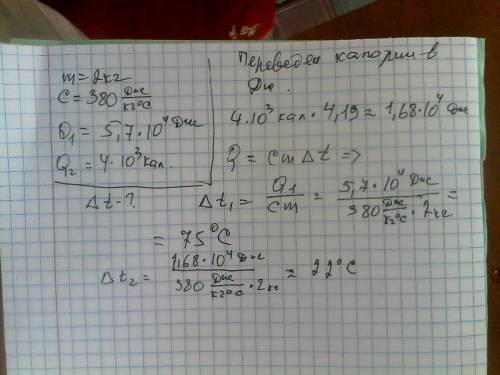 m = 2кг
C = 380 Дж/кг°C
Q₁ = 5,7·10⁴ Дж
Q₂ = 4·10³ кал.
Δt - ?
Переведем калории в
Дж.
4·10³ кал · 4,19 ≈ 1,68·10⁴ Дж
Q = cmΔt =>
Δt₁ = Q₁/cm = 5,7·10⁴ Дж/380 Дж/кг°C · 2кг =
= 75°C
Δt₂ = 1,68·10⁴ Дж/380 Дж/кг°C · 2кг ≈ 22°C